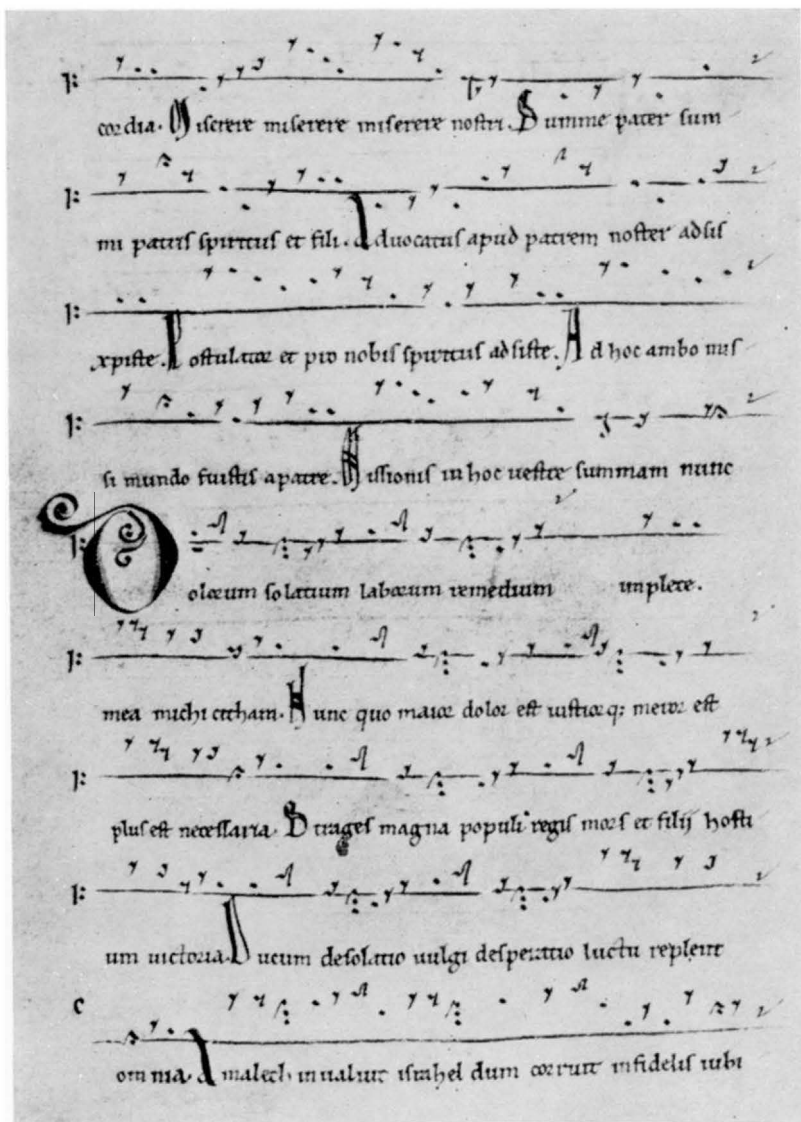 cordia. Miserere miserere miserere nostri. Summe pater sum
mi patris spiritus et fili. Aduocatus apud patrem noster adsis
xpiste. Postulator et pro nobis spiritus adsiste. Ad hoc ambo mis
si mundo fuistis a patre. Missionis in hoc uestre summam nunc
Dolorum solatium laborum remedium implete.
mea michi cithara. Nunc quo maior dolor est iustiorq; meror est
plus est necessaria. Strages magna populi regis mors et filij hosti
um uictoria. Ducum desolatio uulgi desperatio luctu replent
C
omnia. Amalech inualuit israhel dum corruit infidelis iubi